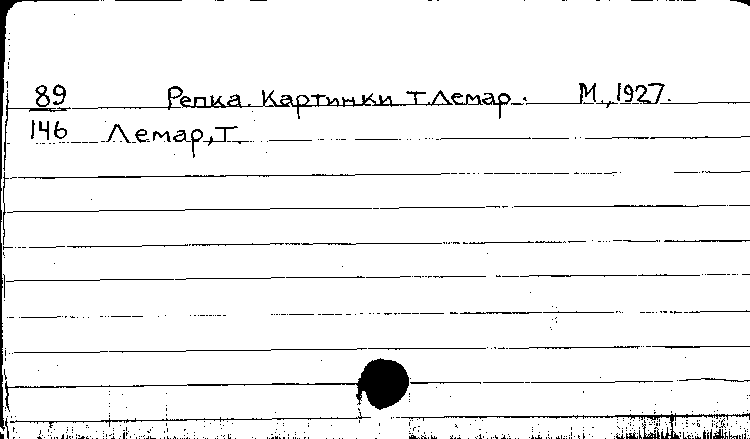 89 Репка. Картинки Т. Лемар. М., 1927.
146 Лемар, Т.